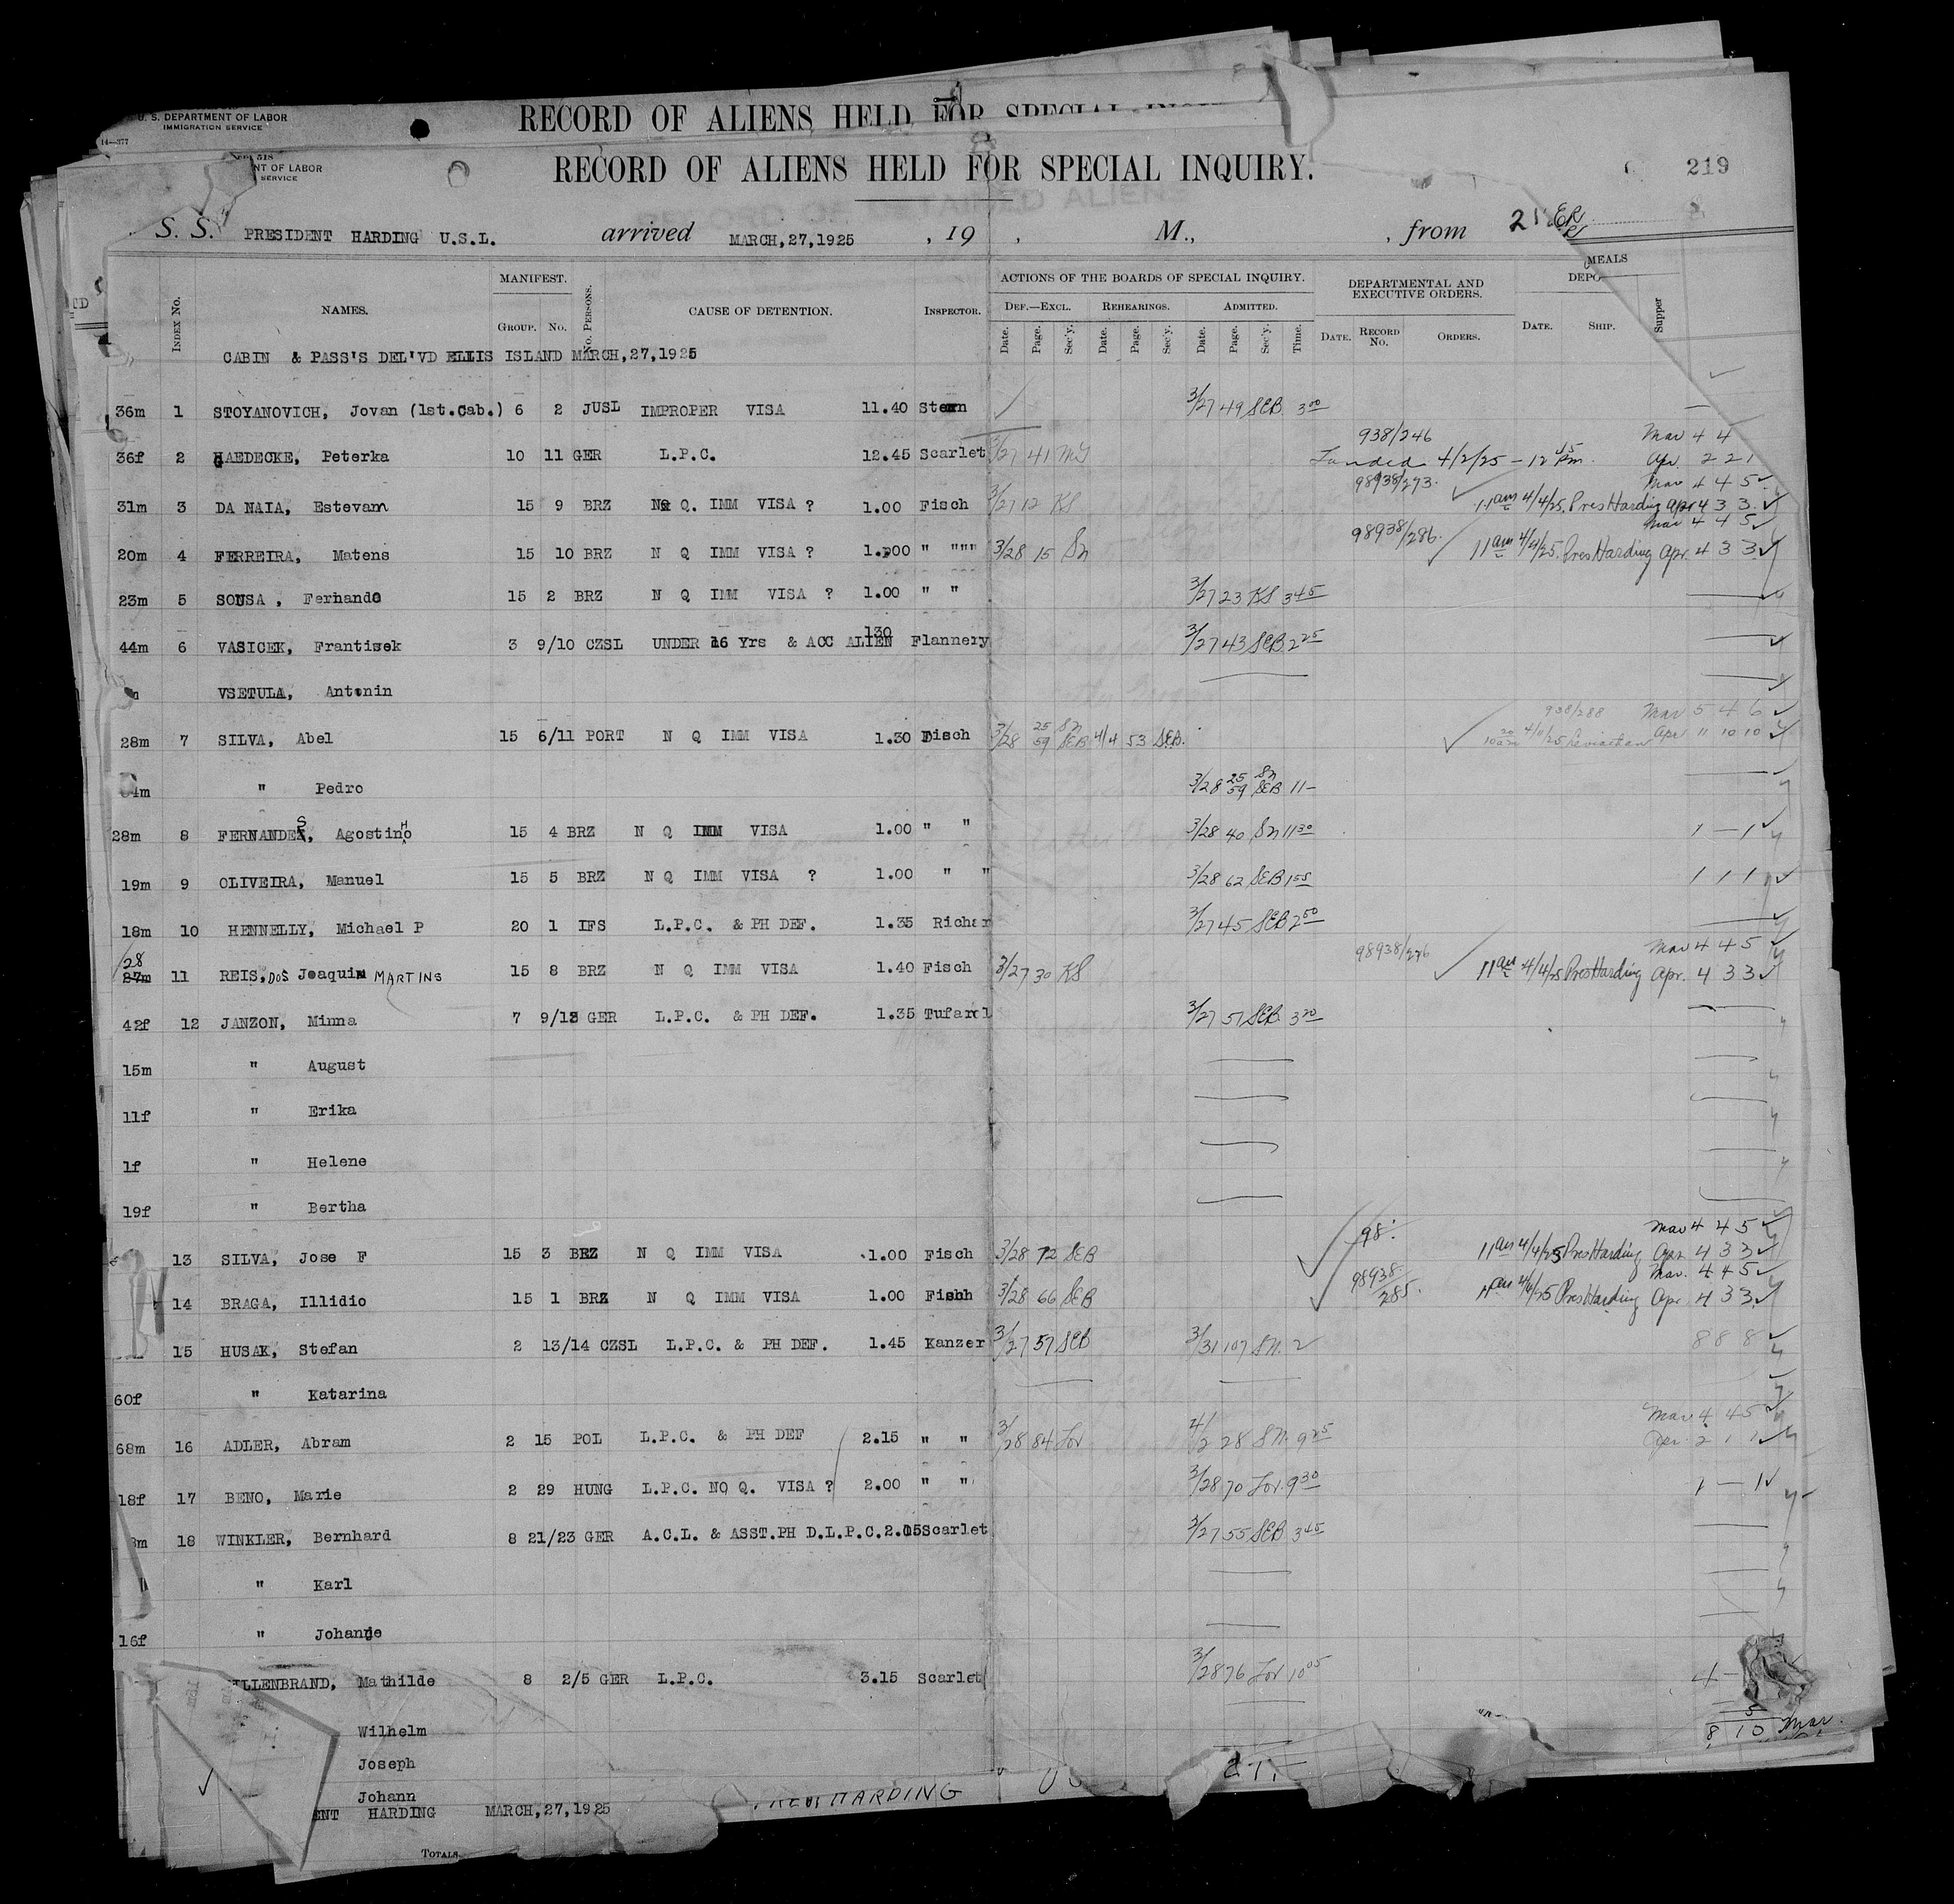 U. S. DEPARTMENT OF LABOR
IMMIGRATION SERVICE
14—377
RECORD OF ALIENS HELD FOR SPECIAL
518
NT OF LABOR
SERVICE
RECORD OF ALIENS HELD FOR SPECIAL INQUIRY.
219
S. S. PRESIDENT HARDING U.S.L. arrived MARCH,27,1925 , 19 , M., , from
INDEX No. NAMES. MANIFEST. GROUP. No. No. PERSONS. CAUSE OF DETENTION. INSPECTOR. ACTIONS OF THE BOARDS OF SPECIAL INQUIRY. DEPARTMENTAL AND EXECUTIVE ORDERS. DEPO MEALS
DEF.—EXCL. REHEARINGS. ADMITTED.
Date. Page. Sec'y. Date. Page. Sec'y. Date. Page. Sec'y. Time. DATE. RECORD No. ORDERS. DATE. SHIP. Supper
CABIN & PASS'S DEL'VD ELLIS ISLAND MARCH,27,1925
36m 1 STOYANOVICH, Jovan (1st.Cab.) 6 2 JUSL IMPROPER VISA 11.40 Stern 3/27 49 SEB 3 00
938/246 Mar 4 4
36f 2 HAEDECKE, Peterka 10 11 GER L.P.C. 12.45 Scarlet 3/27 41 Landed 4/2/25 - 12 45 Pm. Apr. 2 2 1
98938/293. Mar 4 4 5
31m 3 DA NAIA, Estevam 15 9 BRZ NO Q. IMM VISA ? 1.00 Fisch 3/27 12 KS 11 am 4/4/25. Pres Harding apr 4 3 3
98938/286. Mar 4 4 5
20m 4 FERREIRA, Matens 15 10 BRZ N Q IMM VISA ? 1.00 " """ 3/28 15 Sn 11 am 4/4/25. Pres Harding Apr. 4 3 3
23m 5 SOUSA , Fernando 15 2 BRZ N Q IMM VISA ? 1.00 " " 3/27 23 KS 3 45
44m 6 VASICEK, Frantisek 3 9/10 CZSL UNDER 16 Yrs & ACC ALIEN 130 Flannery 3/27 43 SEB 2 25
VSETULA, Antonin
938/288 Mar 5 4 6
28m 7 SILVA, Abel 15 6/11 PORT N Q IMM VISA 1.30 Fisch 3/28 25 59 Sn SEB 4/4 53 SEB. 4/11/25 Leviathan Apr 11 10 10
" Pedro 3/28 25 59 Sn SEB 11—
28m 8 FERNANDES, AgostinHo 15 4 BRZ N Q IMM VISA 1.00 " " 3/28 40 Sn 11 30 1 — 1
19m 9 OLIVEIRA, Manuel 15 5 BRZ N Q IMM VISA ? 1.00 " " 3/28 62 SEB 1 55 1 1 1
18m 10 HENNELLY, Michael P 20 1 IFS L.P.C. & PH DEF. 1.35 Richar 3/27 45 SEB 2 50
28 98938/276 Mar 4 4 5
27m 11 REIS, DOS Joaquin MARTINS 15 8 BRZ N Q IMM VISA 1.40 Fisch 3/27 30 KS 11 am 4/4/25 Pres Harding Apr. 4 3 3
42f 12 JANZON, Minna 7 9/13 GER L.P.C. & PH DEF. 1.35 Tufarol 3/27 57 SEB. 3 20
15m " August
11f " Erika
1f " Helene
19f " Bertha
98: Mar 4 4 5
13 SILVA, Jose F 15 3 BRZ N Q IMM VISA 1.00 Fisch 3/28 72 SEB 11 am 4/4/25 Pres Harding Apr 4 3 3
98938/285. Mar. 4 4 5
14 BRAGA, Illidio 15 1 BRZ N Q IMM VISA 1.00 Fisch 3/28 66 SEB 11 am 4/4/25 Pres Harding Apr. 4 3 3
15 HUSAK, Stefan 2 13/14 CZSL L.P.C. & PH DEF. 1.45 Kanzer 3/27 57 SEB 3/31 107 SN. 2 8 8 8
60f " Katarina
Mar 4 4 5
68m 16 ADLER, Abram 2 15 POL L.P.C. & PH DEF 2.15 " " 3/28 84 Lov 4/2 28 SN. 9 25 Apr. 2 1 1
18f 17 BENO, Marie 2 29 HUNG L.P.C. NO Q. VISA ? 2.00 " " 3/28 70 Lov. 9 30 1 — 1
18 WINKLER, Bernhard 8 21/23 GER A.C.L. & ASST.PH D.L.P.C. 2.05 Scarlet 3/27 55 SEB 3 45
" Karl
16f " Johanne
LLENBRAND, Mathilde 8 2/5 GER L.P.C. 3.15 Scarlet 3/28 76 Lov 10 05 4 —
Wilhelm
Joseph
Johann
5
8 10 Mar.
ENT HARDING MARCH,27,1925 HARDING
TOTALS